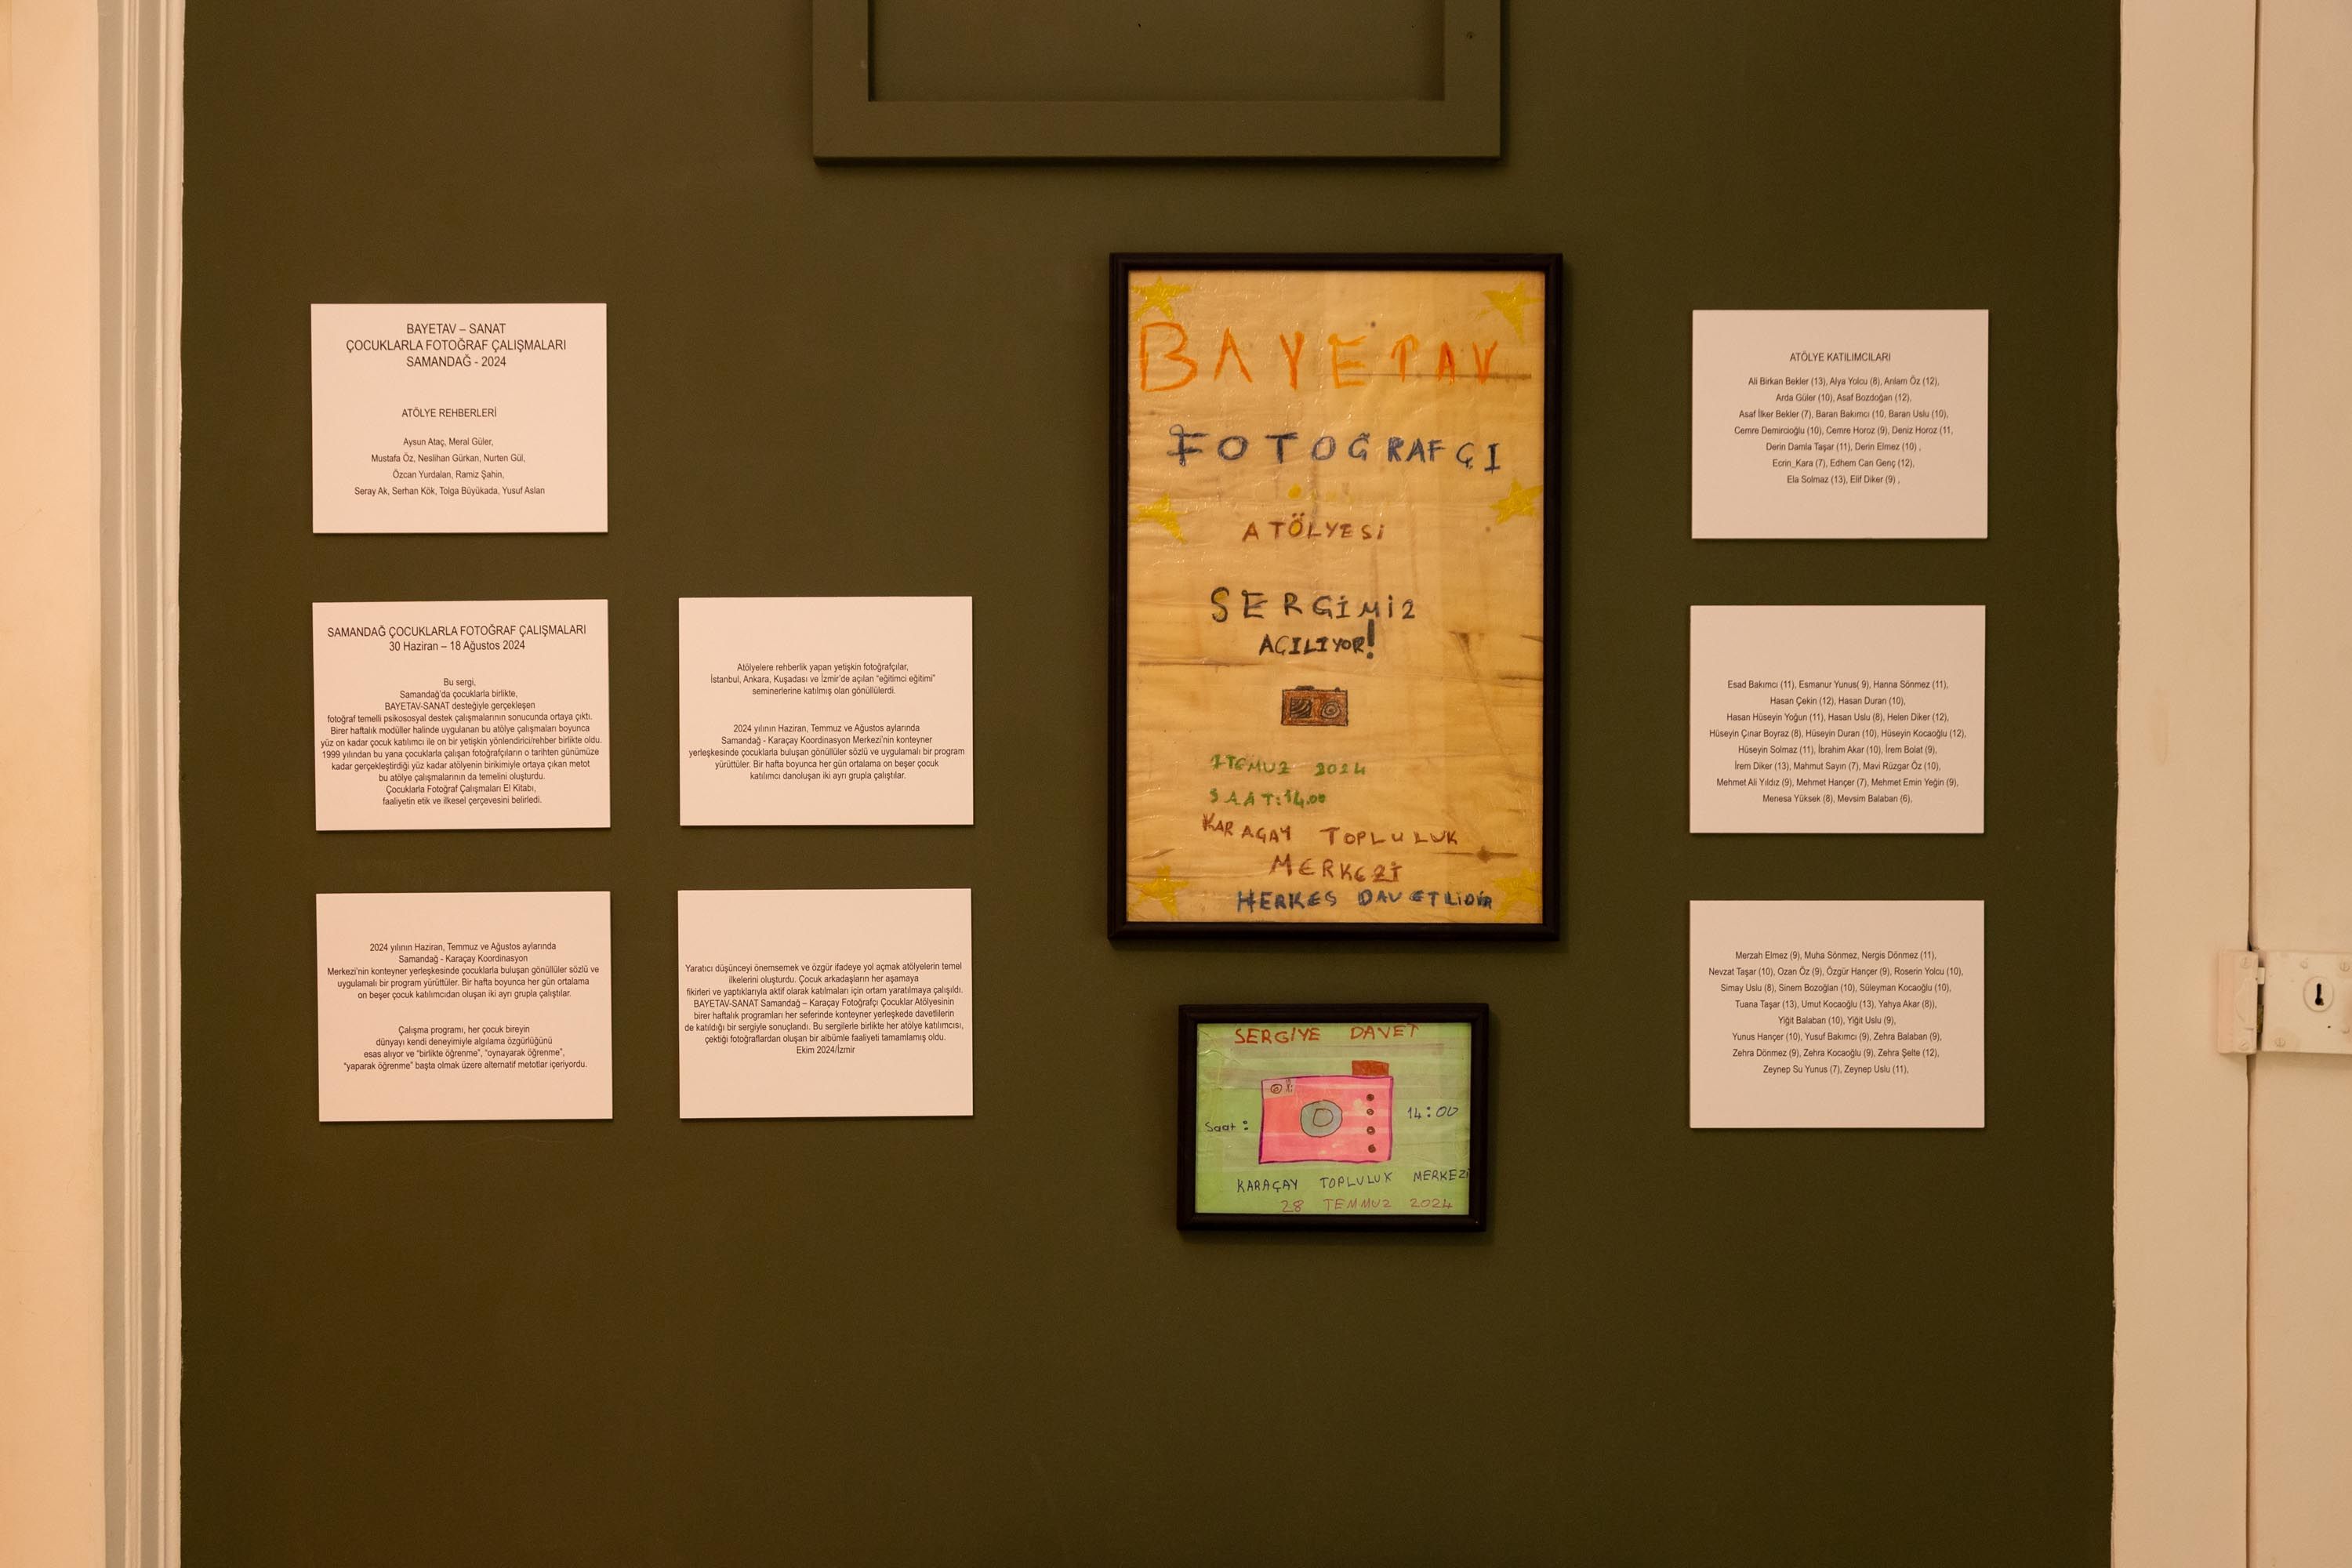 BAYETAV – SANAT
ÇOCUKLARLA FOTOĞRAF ÇALIŞMALARI
SAMANDAĞ - 2024
ATÖLYE REHBERLERİ
Aysun Ataç, Meral Güler,
Mustafa Öz, Neslihan Gürkan, Nurten Gül,
Özcan Yurdalan, Ramiz Şahin,
Seray Ak, Serhan Kök, Tolga Büyükada, Yusuf Aslan
SAMANDAĞ ÇOCUKLARLA FOTOĞRAF ÇALIŞMALARI
30 Haziran – 18 Ağustos 2024
Bu sergi,
Samandağ'da çocuklarla birlikte,
BAYETAV-SANAT desteğiyle gerçekleşen
fotoğraf temelli psikososyal destek çalışmalarının sonucunda ortaya çıktı.
Birer haftalık modüller halinde uygulanan bu atölye çalışmaları boyunca
yüz on kadar çocuk katılımcı ile on bir yetişkin yönlendirici/rehber birlikte oldu.
1999 yılından bu yana çocuklarla çalışan fotoğrafçıların o tarihten günümüze
kadar gerçekleştirdiği yüz kadar atölyenin birikimiyle ortaya çıkan metot
bu atölye çalışmalarının da temelini oluşturdu.
Çocuklarla Fotoğraf Çalışmaları El Kitabı,
faaliyetin etik ve ilkesel çerçevesini belirledi.
2024 yılının Haziran, Temmuz ve Ağustos aylarında
Samandağ - Karaçay Koordinasyon
Merkezi'nin konteyner yerleşkesinde çocuklarla buluşan gönüllüler sözlü ve
uygulamalı bir program yürüttüler. Bir hafta boyunca her gün ortalama
on beşer çocuk katılımcıdan oluşan iki ayrı grupla çalıştılar.
Çalışma programı, her çocuk bireyin
dünyayı kendi deneyimiyle algılama özgürlüğünü
esas alıyor ve "birlikte öğrenme", "oynayarak öğrenme",
"yaparak öğrenme" başta olmak üzere alternatif metotlar içeriyordu.
Atölyelere rehberlik yapan yetişkin fotoğrafçılar,
İstanbul, Ankara, Kuşadası ve İzmir'de açılan "eğitimci eğitimi"
seminerlerine katılmış olan gönüllülerdi.
2024 yılının Haziran, Temmuz ve Ağustos aylarında
Samandağ - Karaçay Koordinasyon Merkezi'nin konteyner
yerleşkesinde çocuklarla buluşan gönüllüler sözlü ve uygulamalı bir program
yürüttüler. Bir hafta boyunca her gün ortalama on beşer çocuk
katılımcı danoluşan iki ayrı grupla çalıştılar.
Yaratıcı düşünceyi önemsemek ve özgür ifadeye yol açmak atölyelerin temel
ilkelerini oluşturdu. Çocuk arkadaşların her aşamaya
fikirleri ve yaptıklarıyla aktif olarak katılmaları için ortam yaratılmaya çalışıldı.
BAYETAV-SANAT Samandağ – Karaçay Fotoğrafçı Çocuklar Atölyesinin
birer haftalık programları her seferinde konteyner yerleşkede davetlilerin
de katıldığı bir sergiyle sonuçlandı. Bu sergilerle birlikte her atölye katılımcısı,
çektiği fotoğraflardan oluşan bir albümle faaliyeti tamamlamış oldu.
Ekim 2024/İzmir
BAYETAV
FOTOĞRAFÇI
ATÖLYESİ
SERGİMİZ
AÇILIYOR!
7 TEMUZ 2024
SAAT:14.00
KARAÇAY TOPLULUK
MERKEZİ
HERKES DAVETLİDİR
SERGİYE DAVET
Saat : 14:00
KARAÇAY TOPLULUK MERKEZİ
28 TEMMUZ 2024
ATÖLYE KATILIMCILARI
Ali Birkan Bekler (13), Alya Yolcu (8), Anlam Öz (12),
Arda Güler (10), Asaf Bozdoğan (12),
Asaf İlker Bekler (7), Baran Bakımcı (10, Baran Uslu (10),
Cemre Demircioğlu (10), Cemre Horoz (9), Deniz Horoz (11,
Derin Damla Taşar (11), Derin Elmez (10) ,
Ecrin_Kara (7), Edhem Can Genç (12),
Ela Solmaz (13), Elif Diker (9) ,
Esad Bakımcı (11), Esmanur Yunus( 9), Hanna Sönmez (11),
Hasan Çekin (12), Hasan Duran (10),
Hasan Hüseyin Yoğun (11), Hasan Uslu (8), Helen Diker (12),
Hüseyin Çınar Boyraz (8), Hüseyin Duran (10), Hüseyin Kocaoğlu (12),
Hüseyin Solmaz (11), İbrahim Akar (10), İrem Bolat (9),
İrem Diker (13), Mahmut Sayın (7), Mavi Rüzgar Öz (10),
Mehmet Ali Yıldız (9), Mehmet Hançer (7), Mehmet Emin Yeğin (9),
Menesa Yüksek (8), Mevsim Balaban (6),
Merzah Elmez (9), Muha Sönmez, Nergis Dönmez (11),
Nevzat Taşar (10), Ozan Öz (9), Özgür Hançer (9), Roserin Yolcu (10),
Simay Uslu (8), Sinem Bozoğlan (10), Süleyman Kocaoğlu (10),
Tuana Taşar (13), Umut Kocaoğlu (13), Yahya Akar (8)),
Yiğit Balaban (10), Yiğit Uslu (9),
Yunus Hançer (10), Yusuf Bakımcı (9), Zehra Balaban (9),
Zehra Dönmez (9), Zehra Kocaoğlu (9), Zehra Şelte (12),
Zeynep Su Yunus (7), Zeynep Uslu (11),